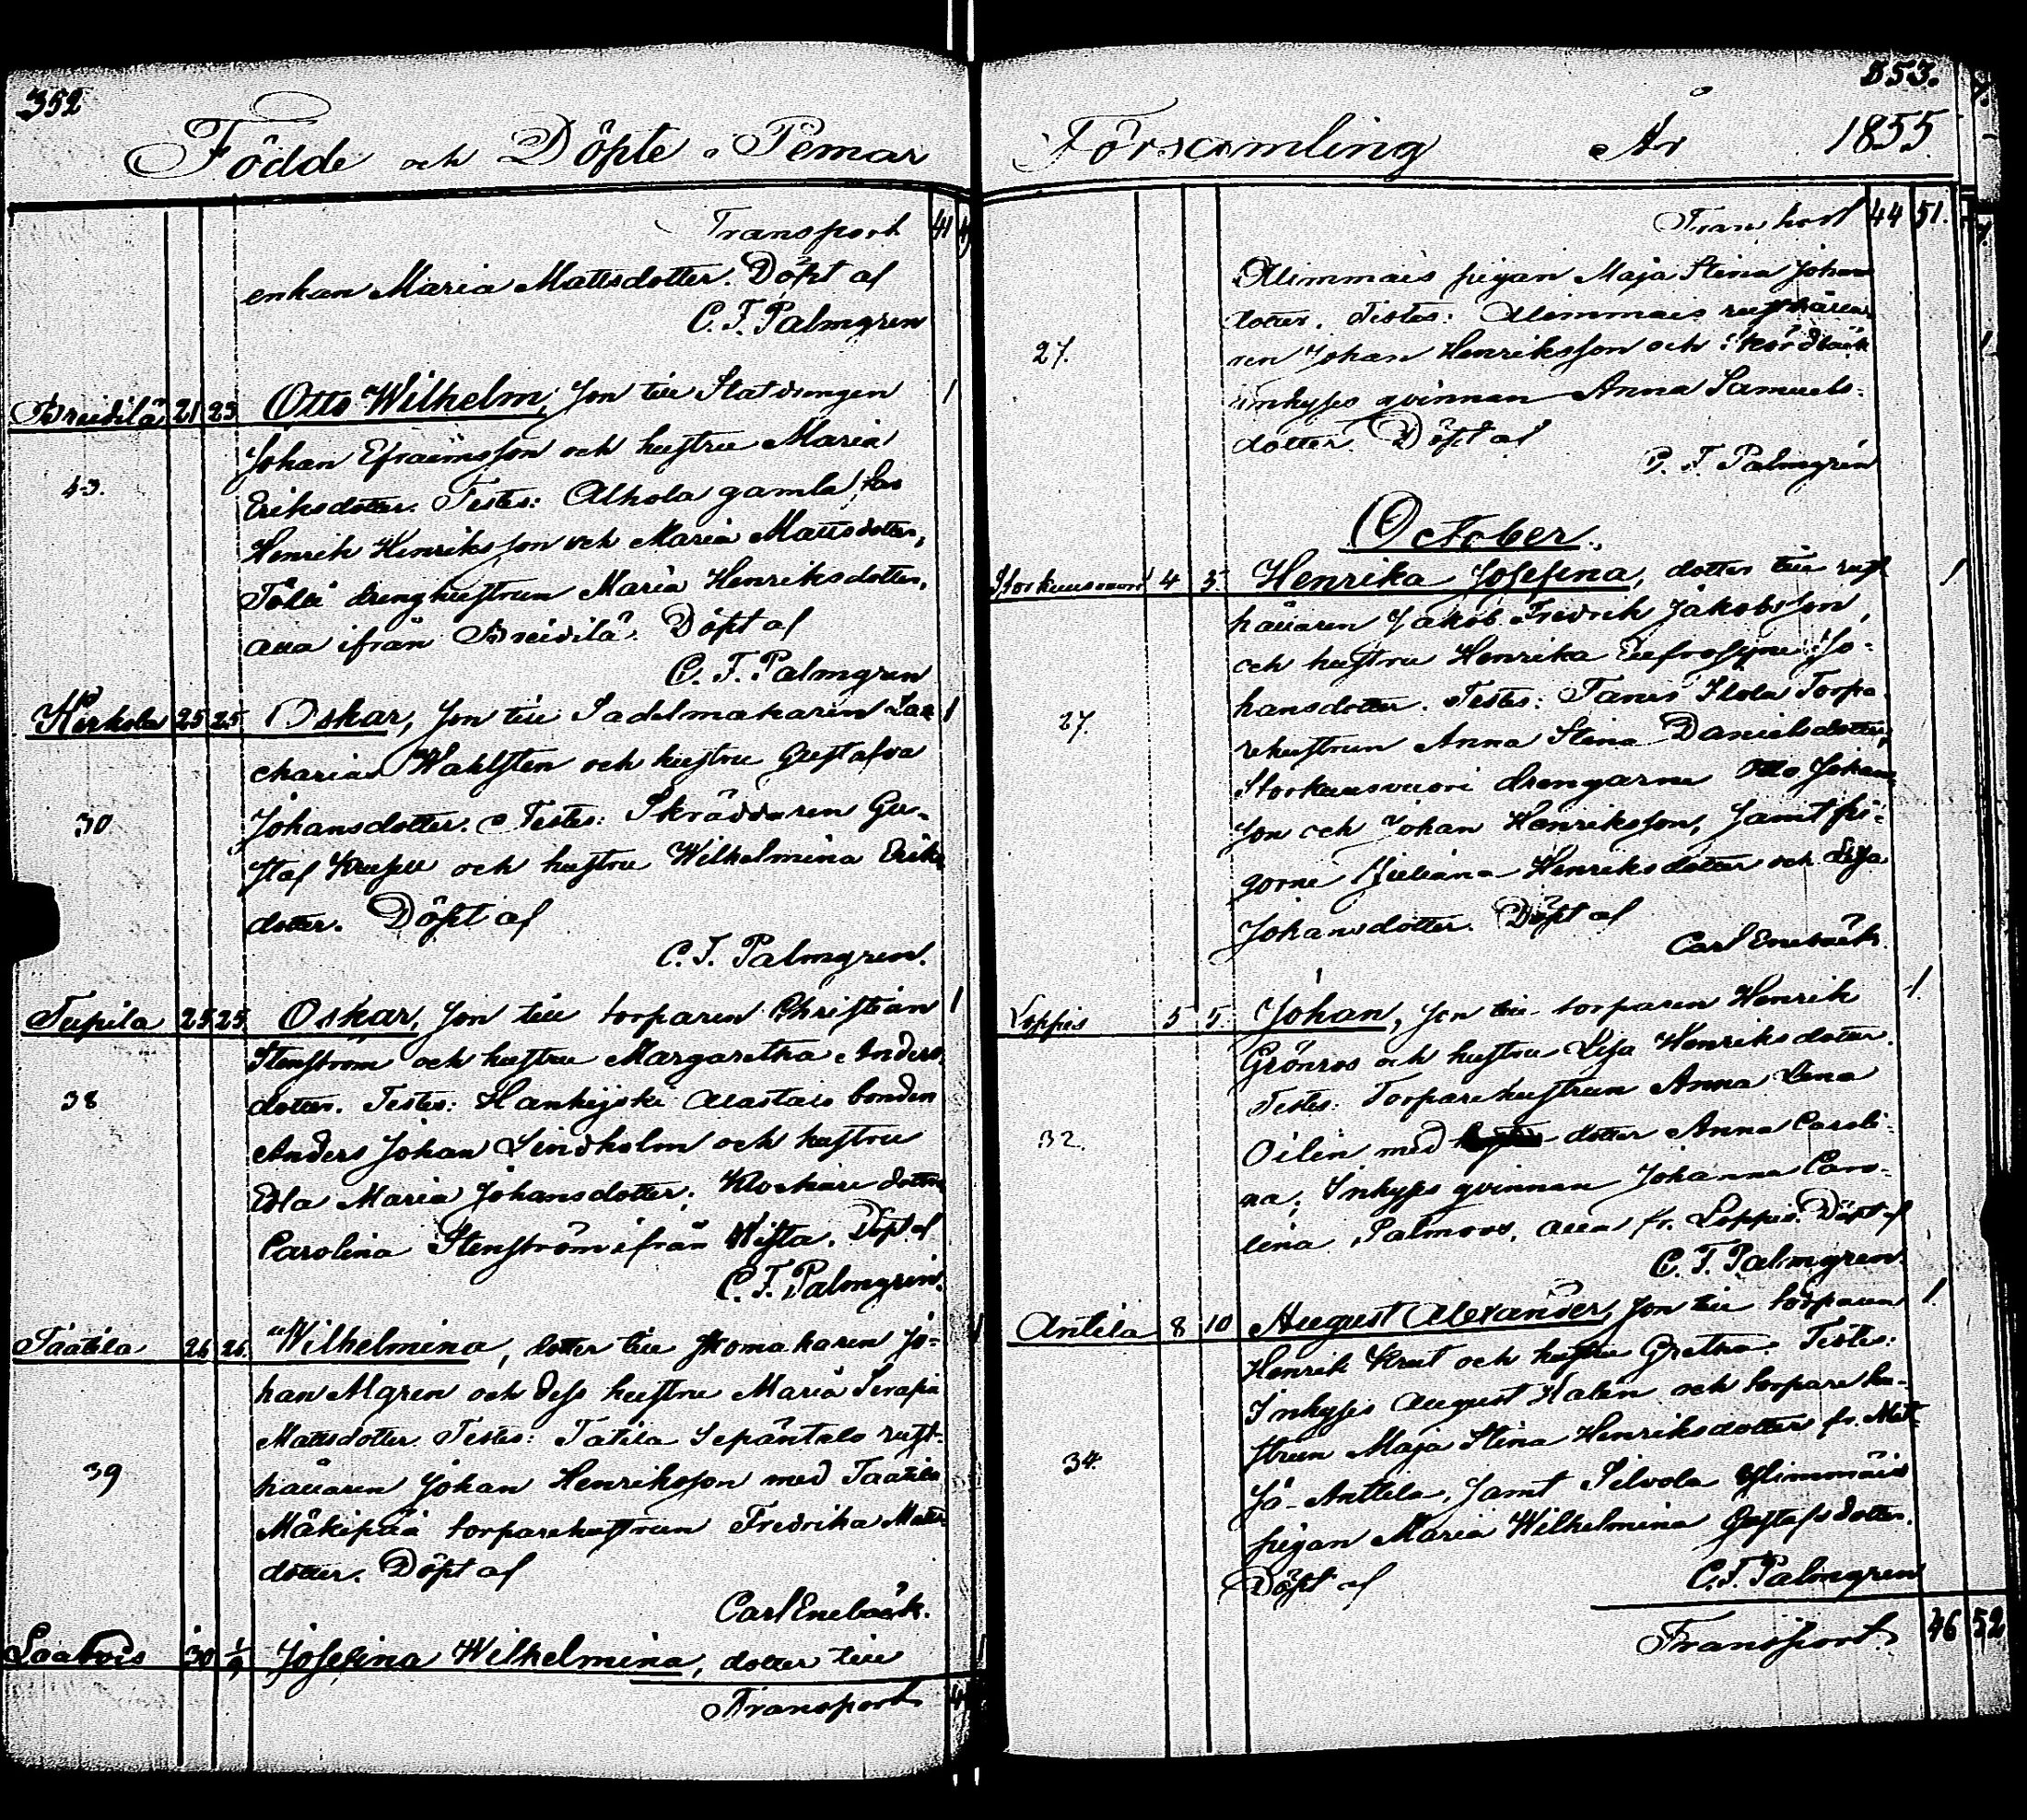 352
Födde och Döpte i Pemar
Transport 41
enkan Maria Mattsdotter. Döpt af
C. F. Palmgren
Preidilä 21 23 Otto Wilhelm, son till Statdrengen 1
Johan Efraimsson och hustru Maria
43. Eriksdotter. Testes: Alhola gamla
Henrik Henriksson och Maria Mattsdotter,
drenghustrun Maria Henriksdotter,
alla ifrån Preidilä. Döpt af
C. F. Palmgren
Kirkola 25 25 Oskar, son till Sadelmakaren Za- 1
charias Wahlsten och hustru Gustafva
30 Johansdotter. Testes: Skräddaren Gu-
staf och hustru Wilhelmina Eriks
dotter. Döpt af
C. F. Palmgren.
Tupila 25 25 Oskar, son till torparen Christian 1
Stenström och hustru Margaretha Anders
38 dotter. Testes: Hankijoki Alastalo bonden
Anders Johan Lindholm och hustru
Edla Maria Johansdotter, Klockare dotter
Carolina Stenström ifrån Wista. Döpt af
C. F. Palmgren.
Taatila 26 26. Wilhelmina, dotter till skomakaren Jo- 1
han Algren och dess hustru Maria Serafia
Mattsdotter. Testes: Tatila Sepäntalo rust-
39 hållaren Johan Henriksson med Taatila
Mäkipää torparehustrun Fredrika Matts
dotter. Döpt af
Carl Enebäck.
30 1/9 Josefina Wilhelmina, dotter till
Transport
353.
Församling År 1855
Transport 44 51.
Alimmais pigan Maja Stina Johans
dotter. Testes: Alimmais rusthålla-
27. ren Johan Henriksson och
inhyses qvinnan Anna Samuels-
dotter. Döpt af
C. F. Palmgren
October.
Storkuusvuori 4 5. Henrika Josefina, dotter till rust 1
hållaren Jakob Fredrik Jakobsson,
och hustru Henrika Eufrosyne Jo-
27. hansdotter. Testes: Ilola Torpa
rehustrun Anna Stina Danielsdotter,
Storkuusvuori drengarne Otto Johans
son och Johan Henriksson, samt pi-
gorne Juliana Henriksdotter och Lisa
Johansdotter. Döpt af
Carl Enebäck.
Loppis 5 5. Johan, son till torparen Henrik 1.
Grönros och hustru Lisa Henriksdotter.
Testes: Torparehustrun Anna Lena
32. Oilin med dotter Anna Caroli-
na, Inhyses qvinnan Johanna Caro-
lina Palmroos, alla fr. Loppis. Döpt af
C. F. Palmgren.
Antila 8 10 August Alexander, son till torparen 1.
Henrik Krut och hustru Gretha. Testes:
Inhyses August Halin och torpare hu-
34. strun Maja Stina Henriksdotter fr.
Anttila, samt Silvola Ylimmäis
pigan Maria Wilhelmina Gustafsdotter.
Döpt af C. F. Palmgren
Transport. 46 52